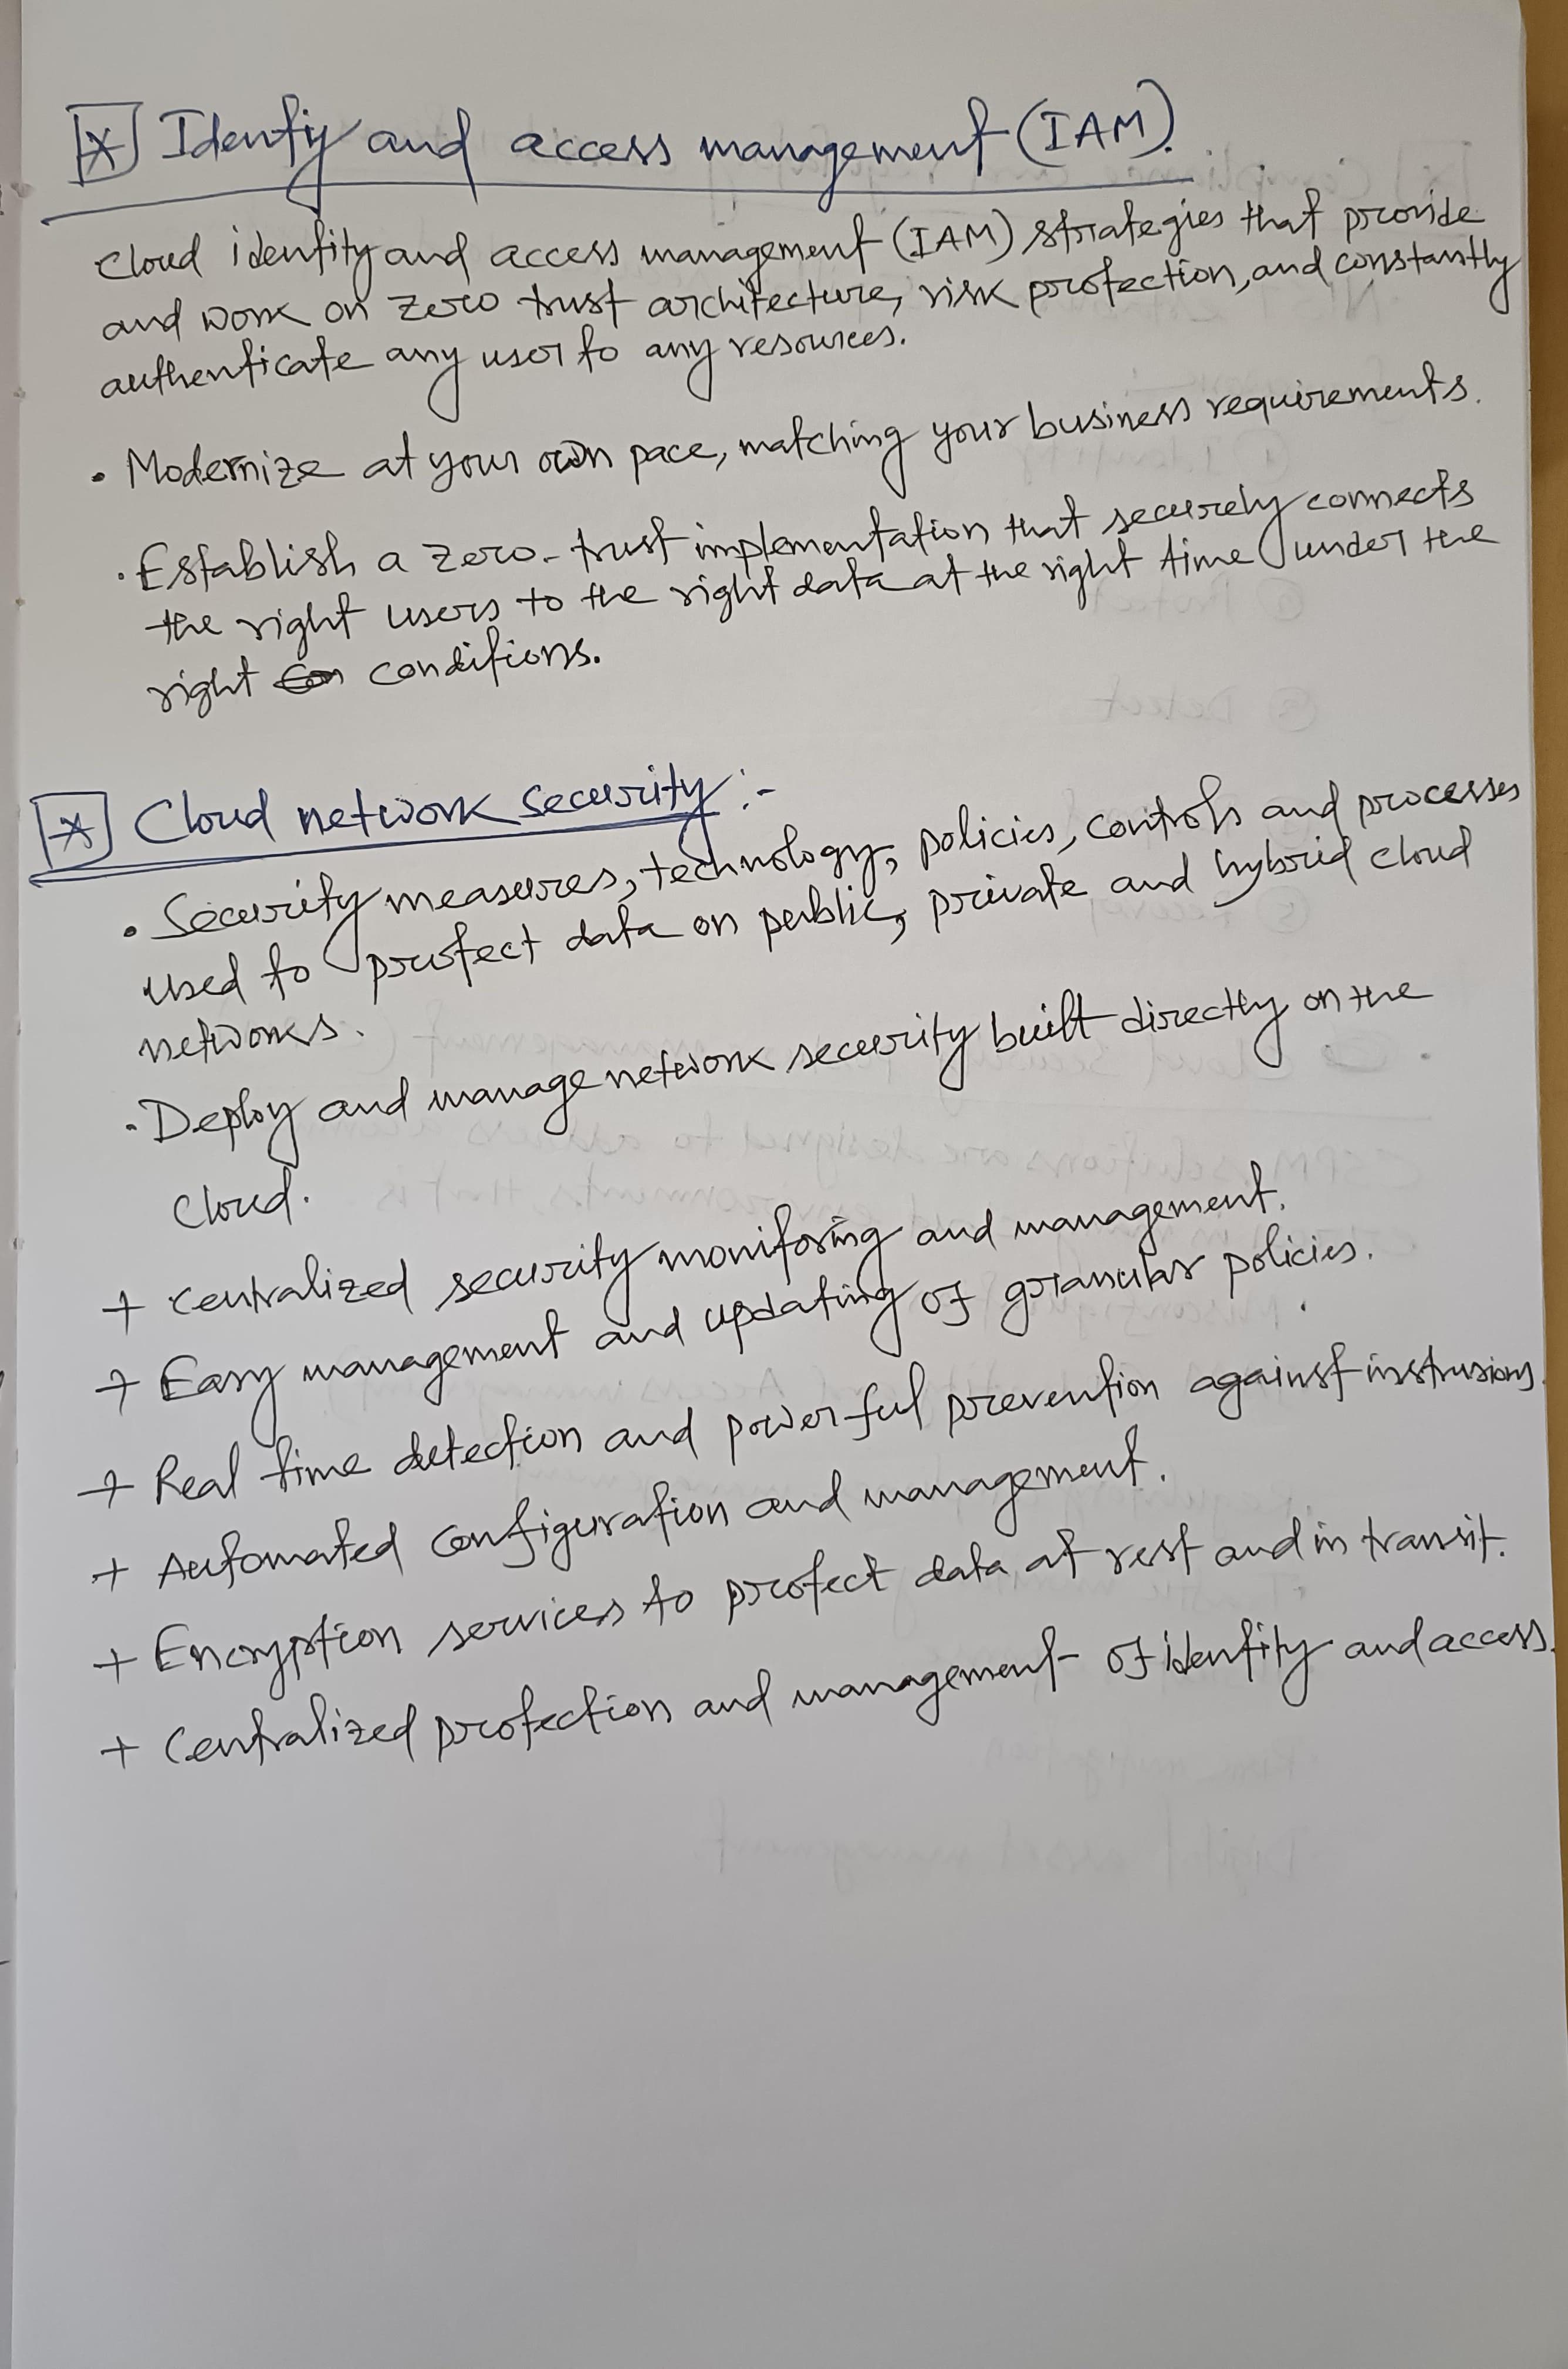 [*] Identiy and access management (IAM).
Cloud identity and access management (IAM) strategies that provide
and work on zero trust architecture, risk protection, and constantly
authenticate any user to any resources.
• Modernize at your own pace, matching your business requirements.
• Establish a zero-trust implementation that securely connects
the right users to the right data at the right time under the
right conditions.
[*] Cloud network security :-
• Security measures, technology, policies, controls and processes
used to protect data on public, private and hybrid cloud
networks.
• Deploy and manage network security built directly on the
cloud.
+ Centralized security monitoring and management.
+ Easy management and updating of granular policies.
+ Real time detection and powerful prevention against instrusions.
+ Automated configuration and management.
+ Encryption services to protect data at rest and in transit.
+ Centralized protection and management of identity and access.